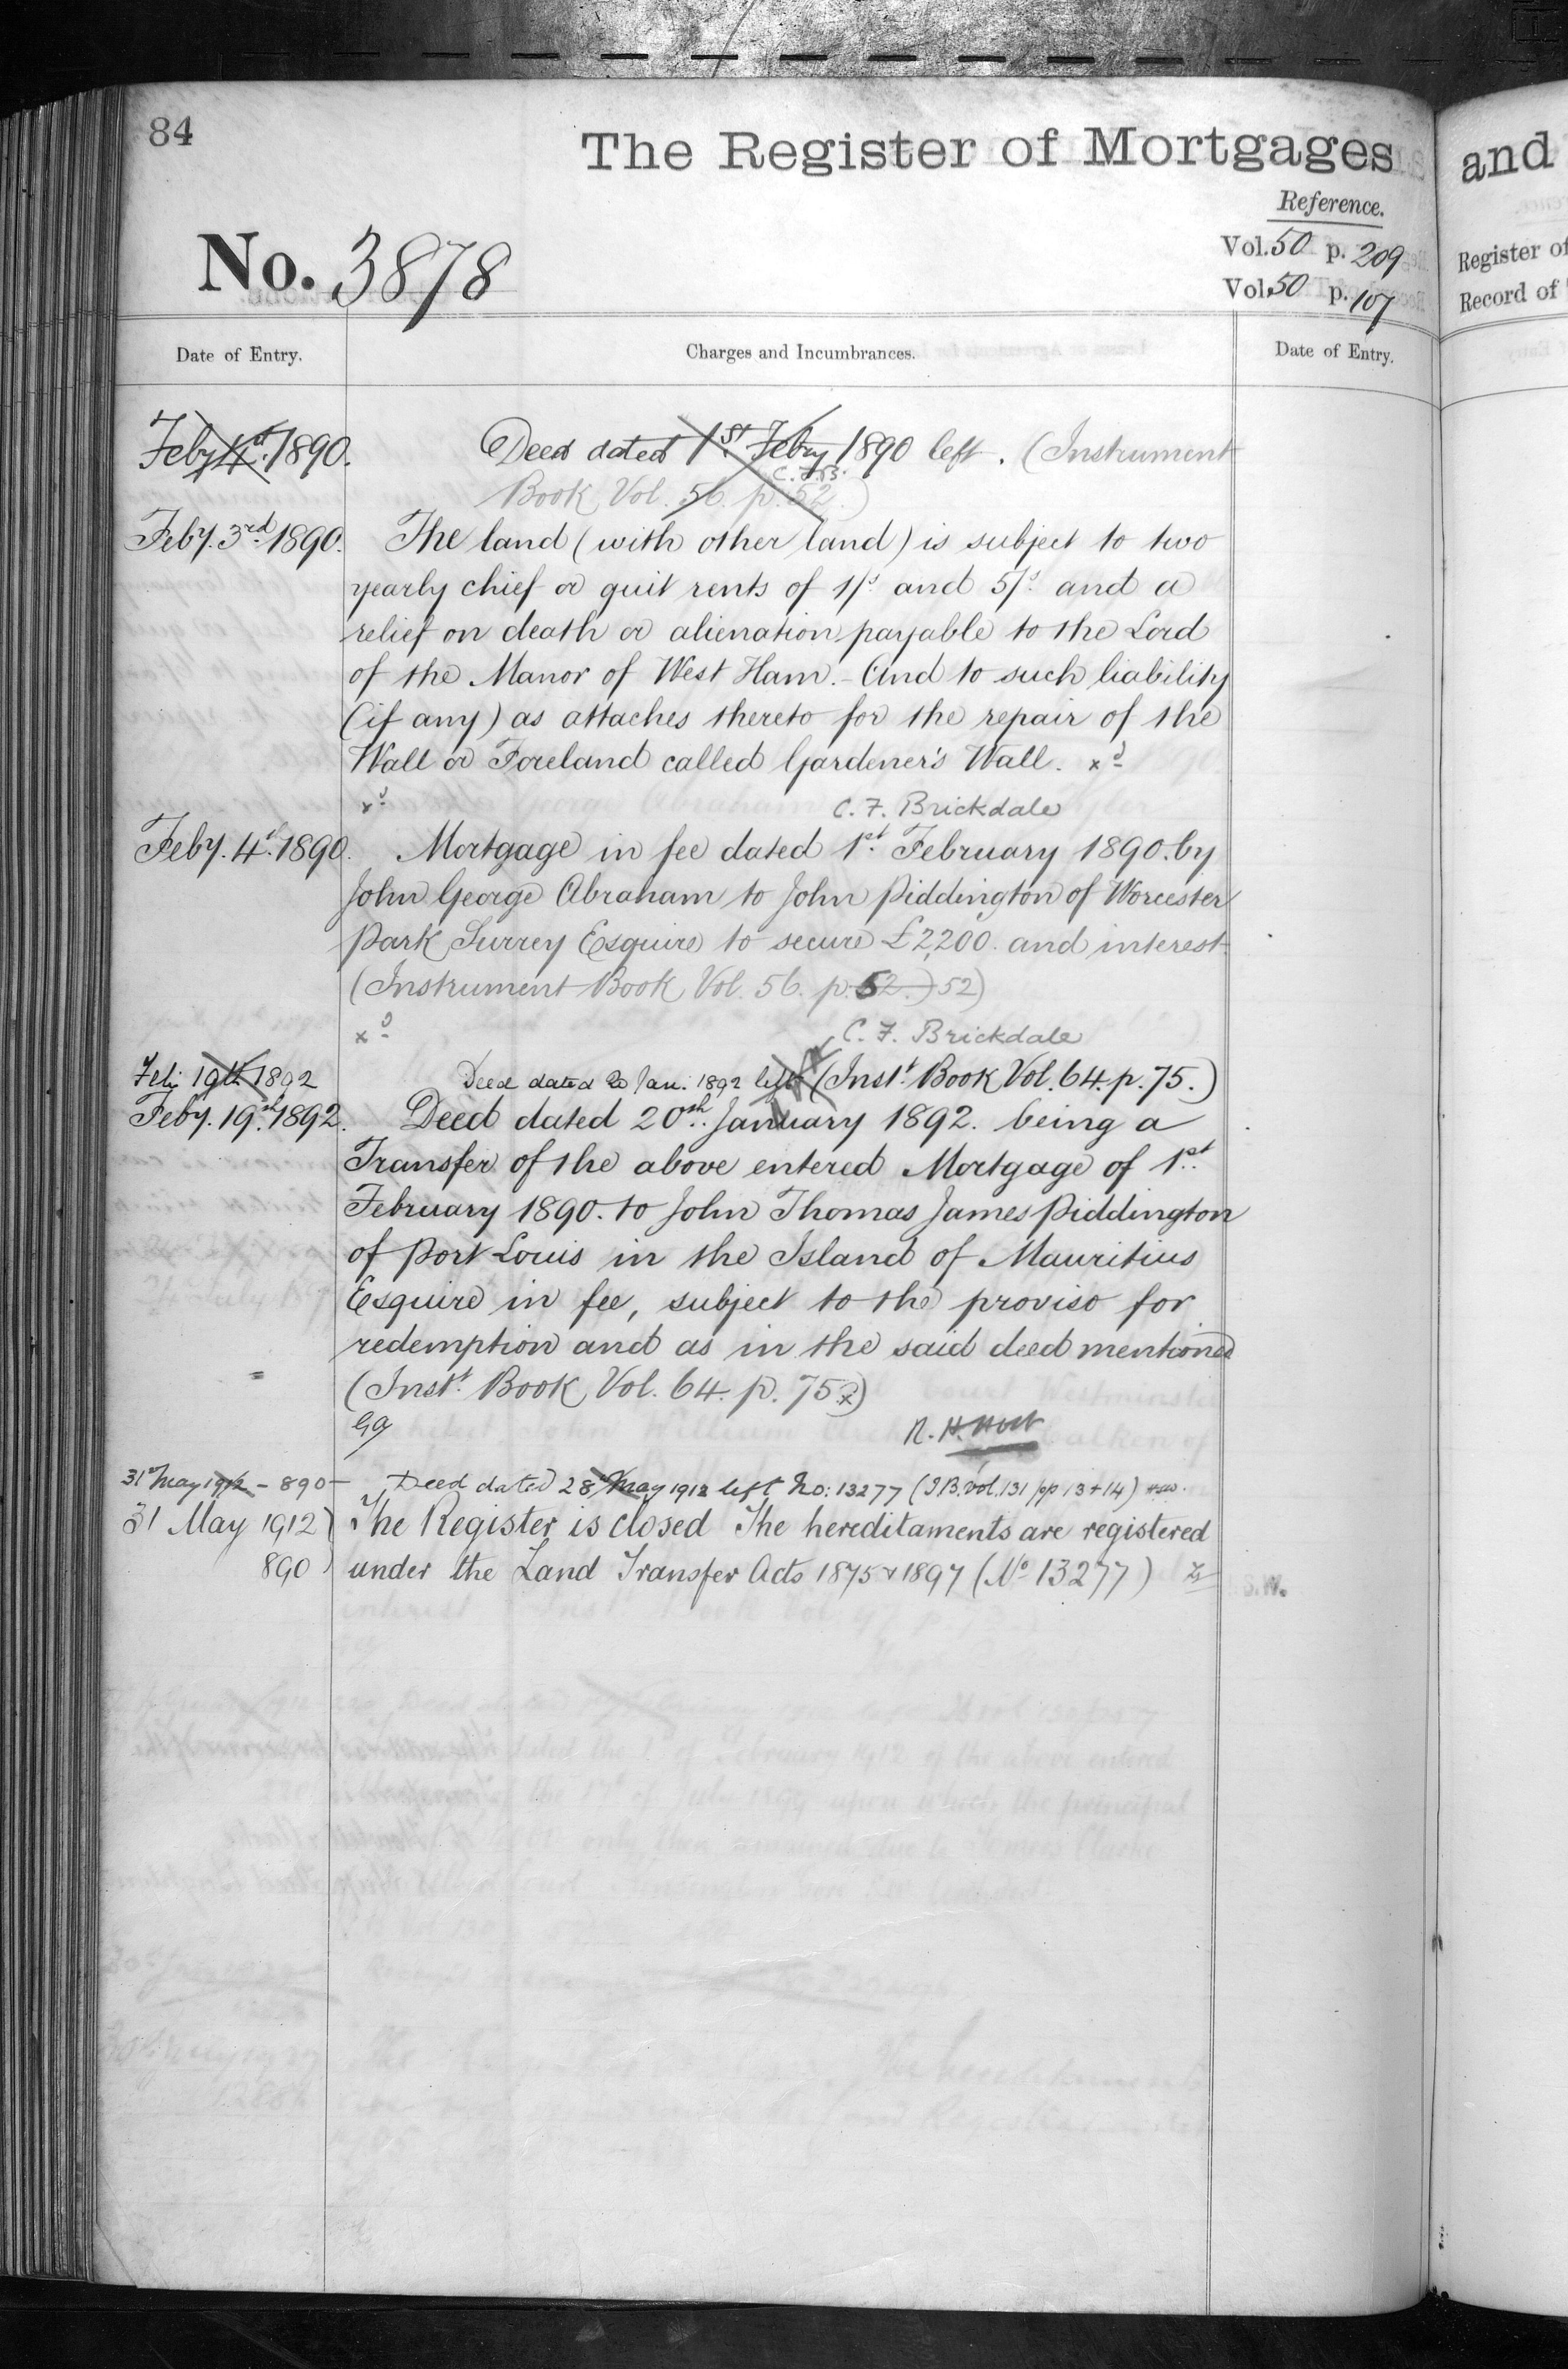 84
The Register of Mortgages
and
Reference.
No. 3878
Vol. 50 p. 209
Vol. 50 p. 107
Register of
Record of
Date of Entry.
Charges and Incumbrances.
Date of Entry.
Feby 4th. 1890. Deed dated 1st Febry 1890 left. (Instrument
C.F.B.
Book Vol. 56. p. 52.)
Feby. 3rd 1890. The land (with other land) is subject to two
yearly chief or quit rents of 1/s and 5/s and a
relief on death or alienation payable to the Lord
of the Manor of West Ham. - And to such liability
(if any) as attaches thereto for the repair of the
Wall or Foreland called Gardener's Wall. x
C. F. Brickdale
Feby. 4th 1890. Mortgage in fee dated 1st February 1890. by
John George Abraham to John Piddington of Worcester
Park Surrey Esquire to secure £2,200. and interest
(Instrument Book Vol. 56. p. 52.) 52)
C. F. Brickdale
Feby 19th 1892 Deed dated 20 Jan: 1892 left (Inst. Book Vol. 64. p. 75.)
Feby. 19th. 1892. Deed dated 20th. January 1892. being a
Transfer of the above entered Mortgage of 1st
February 1890. to John Thomas James Piddington
of Port Louis in the Island of Mauritius
Esquire in fee, subject to the proviso for
redemption and as in the said deed mentioned
(Inst. Book Vol. 64. p. 75)
R. H. Holt
31st May 1912 - 890 - Deed dated 28th May 1912 left No: 13277 (I.B. vol. 131 pp 13+14)
31 May 1912) The Register is closed The hereditaments are registered
890) under the Land Transfer Acts 1875 & 1897 (No 13277)